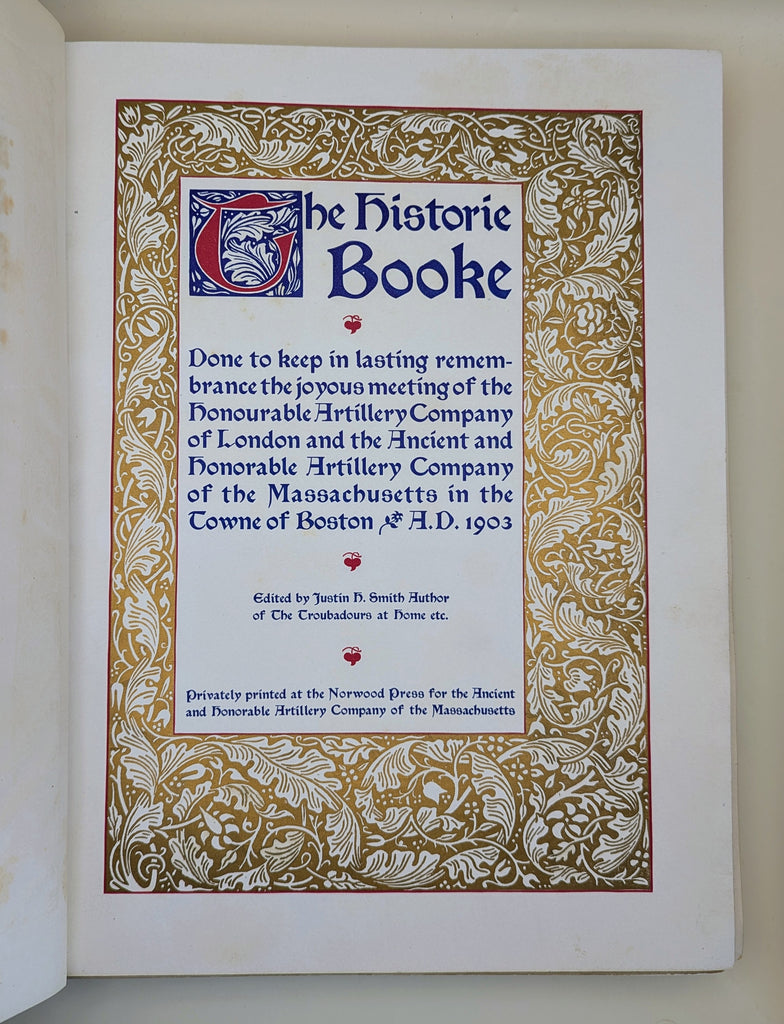 The Historie
Booke
Done to keep in lasting remem-
brance the joyous meeting of the
Honourable Artillery Company
of London and the Ancient and
Honorable Artillery Company
of the Massachusetts in the
Towne of Boston A.D. 1903
Edited by Justin H. Smith Author
of The Troubadours at Home etc.
Privately printed at the Norwood Press for the Ancient
and Honorable Artillery Company of the Massachusetts